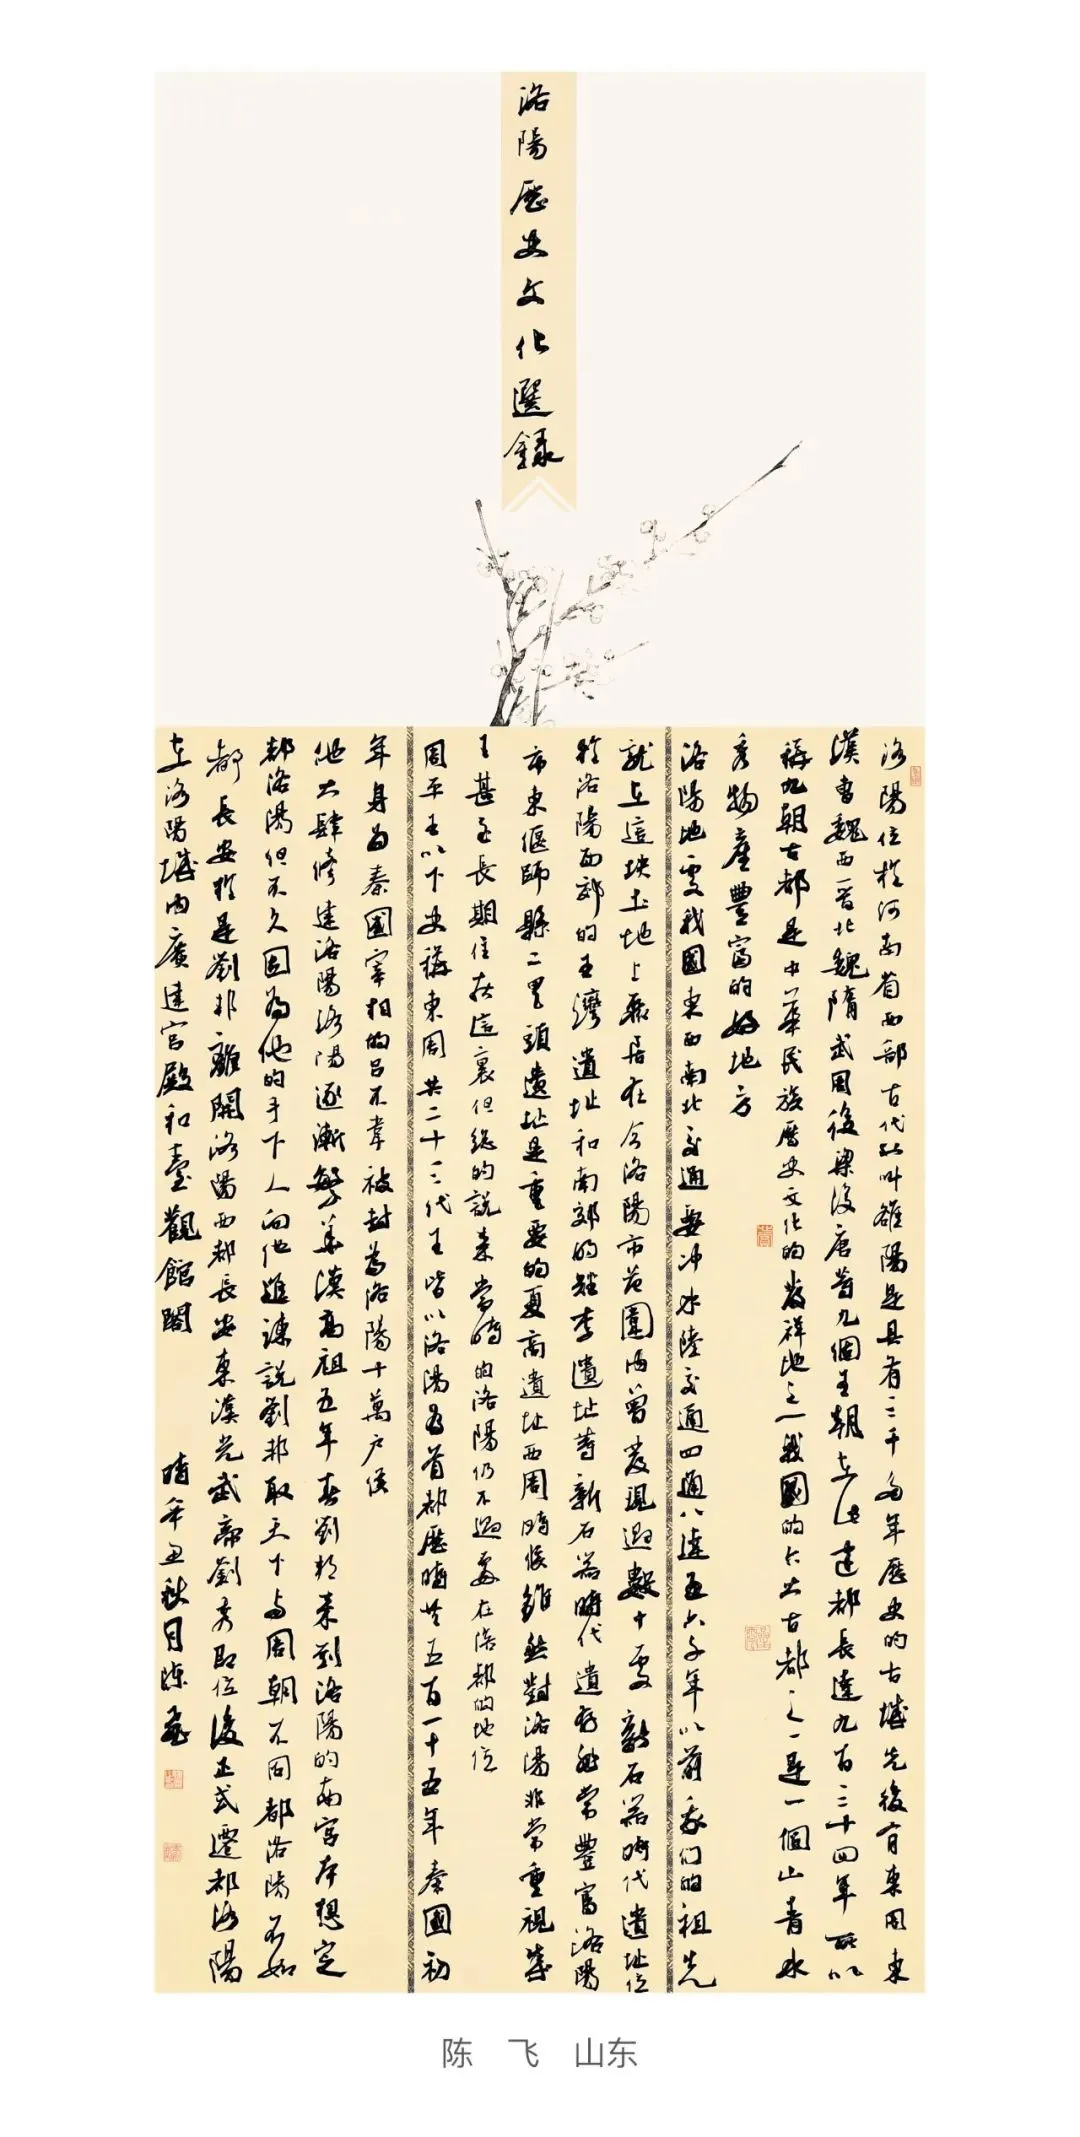 洛陽歷史文化選錄
洛陽位於河南省西部古代以叫雒陽是具有三千多年歷史的古城先後有東周東
漢曹魏西晉北魏隋武周後梁後唐等九個王朝在此建都長達九百三十四年所以
稱九朝古都是中華民族歷史文化的發祥地之一我國的六大古都之一是一個山青水
秀物產豐富的好地方
洛陽地處我國東西南北交通要沖水陸交通四通八達五六千年以前我們的祖先
就在這块土地上聚居在今洛陽市范圍內曾發現過數十處新石器時代遺址位
於洛陽西郊的王灣遺址和南郊的矬李遺址等新石器時代遺存非常豐富洛陽
市東偃師縣二里頭遺址是重要的夏商遺址西周時候雖然對洛陽非常重視成
王甚至長期住在這裏但總的說來當時的洛陽仍不過處在陪都的地位
周平王以下史稱東周共二十三代王皆以洛陽為首都歷時共五百一十五年秦國初
年身為秦國宰相的呂不韋被封為洛陽十萬户侯
他大肆修建洛陽洛陽逐漸繁華漢高祖五年春劉邦來到洛陽的南宮本想定
都洛陽但不久因為他的手下人向他進諫說劉邦取天下与周朝不同都洛陽不如
都長安於是劉邦離開洛陽西都長安東漢光武帝劉秀即位後正式遷都洛陽
在洛陽城內廣建宮殿和臺觀館閣
時辛丑秋月陳飛
陈 飞 山东